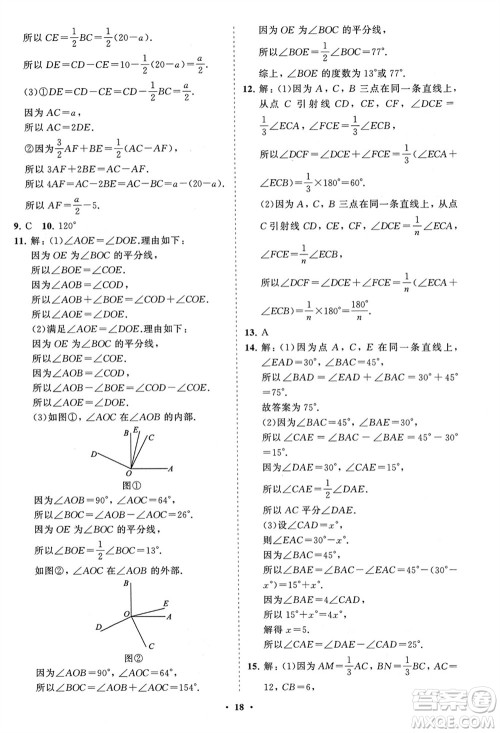 所以 CE=1/2BC=1/2(20-a).
所以 DE=CD-CE=CD-1/2(20-a)=1/2a.
(3)①因为 DE=CD-CE=CD-1/2(20-a)=1/2a.
因为 AC=a.
所以 AC=2DE.
②因为 3/2AF+2BE=AC-AF.
所以 3AF+4BE=2AC-2AF.
所以 4AF=2AC-4BE-AF=
所以 AF=a/2-5.
9. C 10. 120°
11. 解:(1)∠AOE=∠DOE.理由如下:
因为 OE 为∠BOC 的平分线,
所以∠BOE=∠COE.
所以∠AOB-∠BOE=∠COD-∠COE.
所以∠AOE=∠DOE.
(2)满足∠AOE=∠DOE.理由如下:
因为 OE 为∠BOC 的平分线,
所以∠BOE=∠COE.
所以∠AOB-∠BOE=∠COD-∠COE.
所以∠AOE=∠DOE.
(3)如图①,∠AOC 在∠AOB 的内部.
B
E
C
D
O
A
图①
因为∠AOB=90°,∠AOC=64°,
所以∠BOC=∠AOB-∠AOC=26°.
因为 OE 为∠BOC 的平分线,
所以∠BOE=1/2∠BOC=13°.
如图②,∠AOC 在∠AOB 的外部.
B
O
A
D
C
图②
因为∠AOB=90°,∠AOC=64°,
所以∠BOC=∠AOB+∠AOC=154°.
因为 OE 为∠BOC 的平分线,
所以∠BOE=1/2∠BOC=77°.
综上,∠BOE 的度数为 13°或 77°.
12. 解:(1)因为 A,C,B 三点在同一条直线上,
从点 C 引射线 CD,CE,CF,∠DCE=
1/3∠ECA,∠FCE=1/3∠ECB,
所以∠DCF=∠DCE+∠FCE=1/3(∠ECA+
∠ECB)=1/3×180°=60°.
(2)因为 A,C,B 三点在同一条直线上,从点
C 引射线 CD,CE,CF,∠DCE=1/n∠ECA,
∠FCE=1/n∠ECB,
所以∠DCF=∠DCE+∠FCE=1/n(∠ECA+
∠ECB)=1/n×180°=180°/n.
13. A
14. 解:(1)因为点 A,C,E 在同一条直线上,
∠EAD=30°,∠BAC=45°,
所以∠BAD=∠BAC+∠EAD=45°+30°=
75°.
故答案为 75°.
(2)因为∠BAC=45°,∠BAE=15°,
所以∠CAE=∠BAC-∠BAE=30°.
因为∠DAE=30°,
所以∠CAE=∠DAE.
所以 AC 平分∠DAE.
(3)设∠CAD=x°.
则∠CAE=30°-x°.
因为∠BAC=45°,
所以∠BAE=∠BAC-∠CAE=45°-(30°-
x°)=15°+x°.
因为∠BAE=4∠CAD,
所以 15°+x°=4x°.
解得 x=5.
所以∠CAD=5°.
15. 解:(1)因为 AM=1/3AC,BN=1/3BC,AC=
12,CB=6,
18